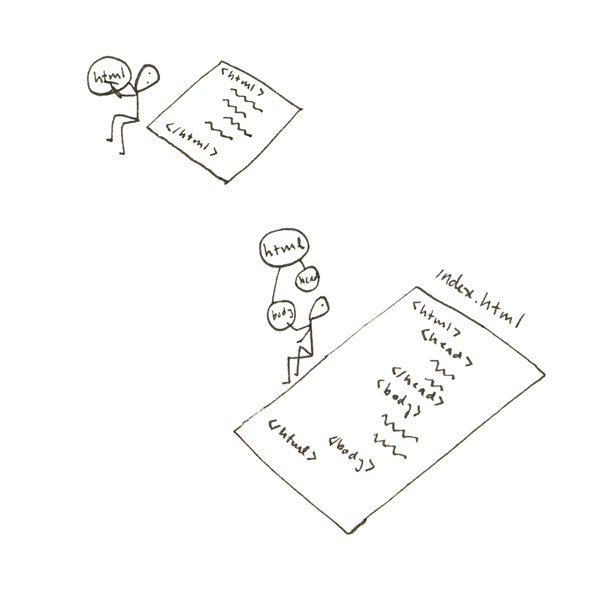 html
<html>
</html>
html
head
body
index.html
<html>
<head>
</head>
<body>
</body>
</html>